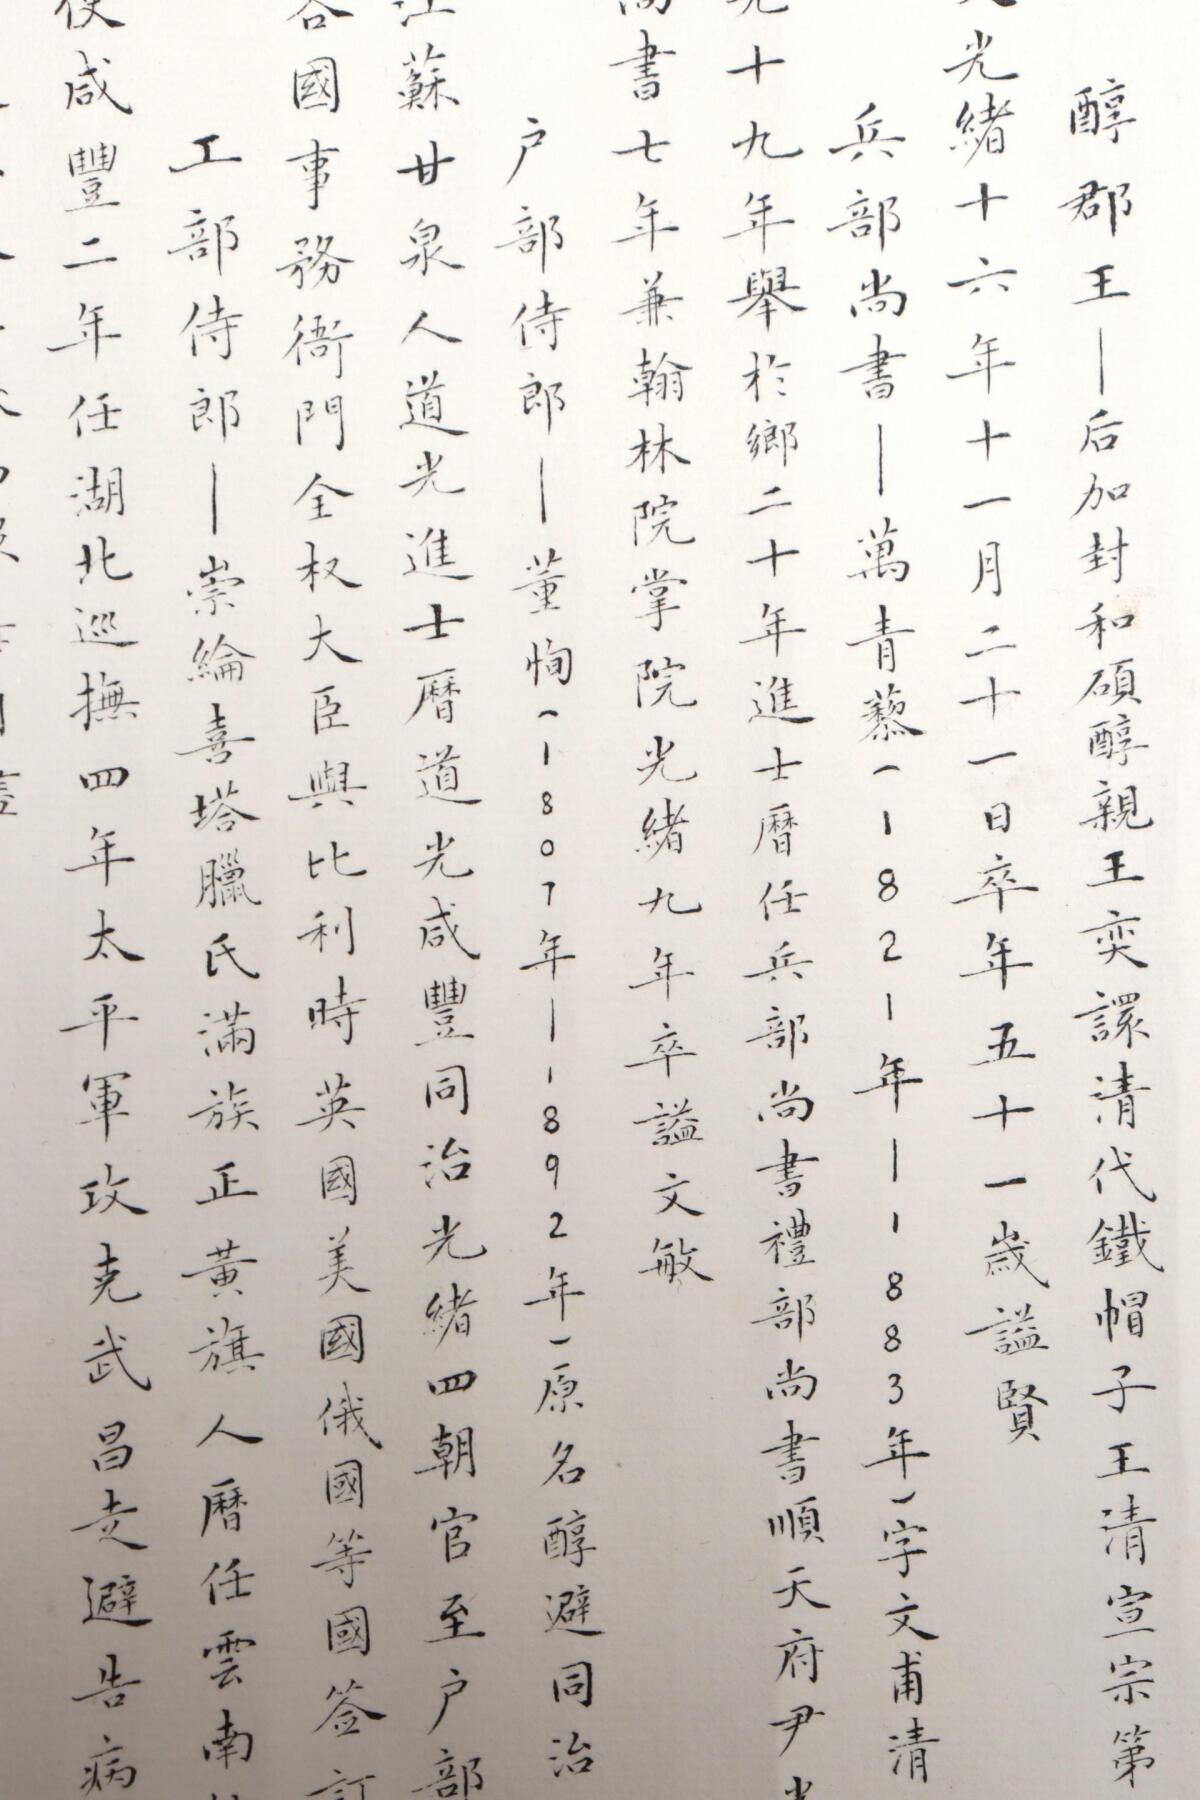 醇郡王—后加封和碩醇親王奕譞清代鐵帽子王清宣宗第
光緒十六年十一月二十一日卒年五十一歲謚賢
兵部尚書—萬青藜(1821年—1883年)字文甫清
十九年舉於鄉二十年進士曆任兵部尚書禮部尚書順天府尹光
尚書七年兼翰林院掌院光緒九年卒謚文敏
户部侍郎—董恂(1807年—1892年)原名醇避同治
江蘇甘泉人道光進士曆道光咸豐同治光緒四朝官至户部
各國事務衙門全权大臣與比利時英國美國俄國等國签訂
工部侍郎—崇綸喜塔臘氏滿族正黃旗人曆任雲南
使咸豐二年任湖北巡撫四年太平軍攻克武昌走避告病